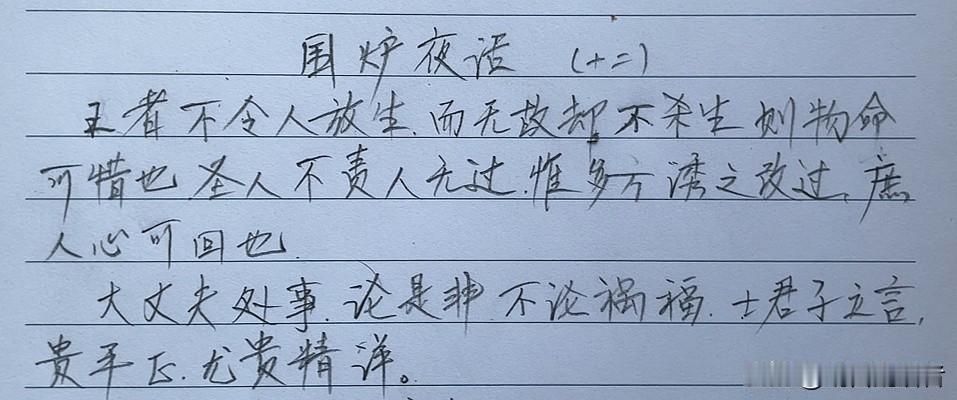 围炉夜话 (十二)
王者不令人放生,而无故却不杀生则物命
可惜也 圣人不责人无过,惟多方诱之改过,庶
人心可回也.
大丈夫处事.论是非 不论祸福.士君子立言,
贵平正.尤贵精详。